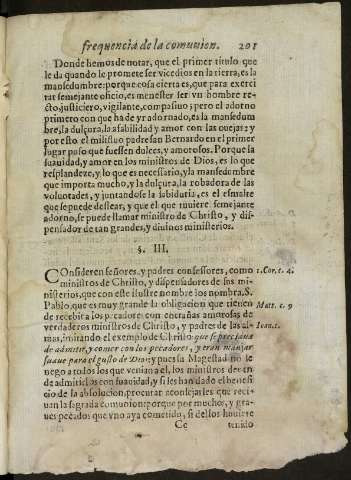 frequencia de la comunion. 201
Donde hemos de notar, que el primer titulo que
le da quando le promete ser vicedios en la tierra, es la
mansedumbre: porque cosa cierta es, que para exerci
tar semejante oficio, es menester ser vn hombre re-
cto, justiciero, vigilante, compasiuo; pero el adorno
primero con que ha de yr adornado, es la mansedum
bre, la dulçura, la afabilidad y amor con las ouejas: y
por esto el mismo padre san Bernardo en el primer
lugar puso que fuessen dulces, y amorosos. Porque la
suauidad, y amor en los ministros de Dios, es lo que
resplandeze, y lo que es necessario, y la mansedumbre
que importa mucho, y la dulçura, la robadora de las
voluntades, y juntandose la sabiduria, es el esmalte
que se puede dessear, y que el que tuuiere semejante
adorno, se puede llamar ministro de Christo, y dis-
pensador de tan grandes, y diuinos ministerios.
§. III.
COnsideren señores, y padres confessores, como 1. Cor. c. 4.
ministros de Christo, y dispensadores de sus mi-
nisterios, que con este ilustre nombre los nombra. S.
Pablo, que es muy grande la obligacion que tienen Matt. c. 9
de recebir a los pecadores con entrañas amorosas de
verdaderos ministros de Christo, y padres de las al- Ioan. c.
mas, imitando el exemplo de Christo: que se preciaua
de admitir, y comer con los pecadores, y eran manjar
suaue para el gusto de Dios: y pues su Magestad no se
nego a todos los que venian a el, los ministros deuen
de admitirlos con suauidad, y si les han dado el benefi
cio de la absolucion, procurar aconsejarles que reci-
uan la sagrada comunion: porque por muchos, y gra-
ues pecados que vno aya cometido, si dellos huuiere
Cc tenido